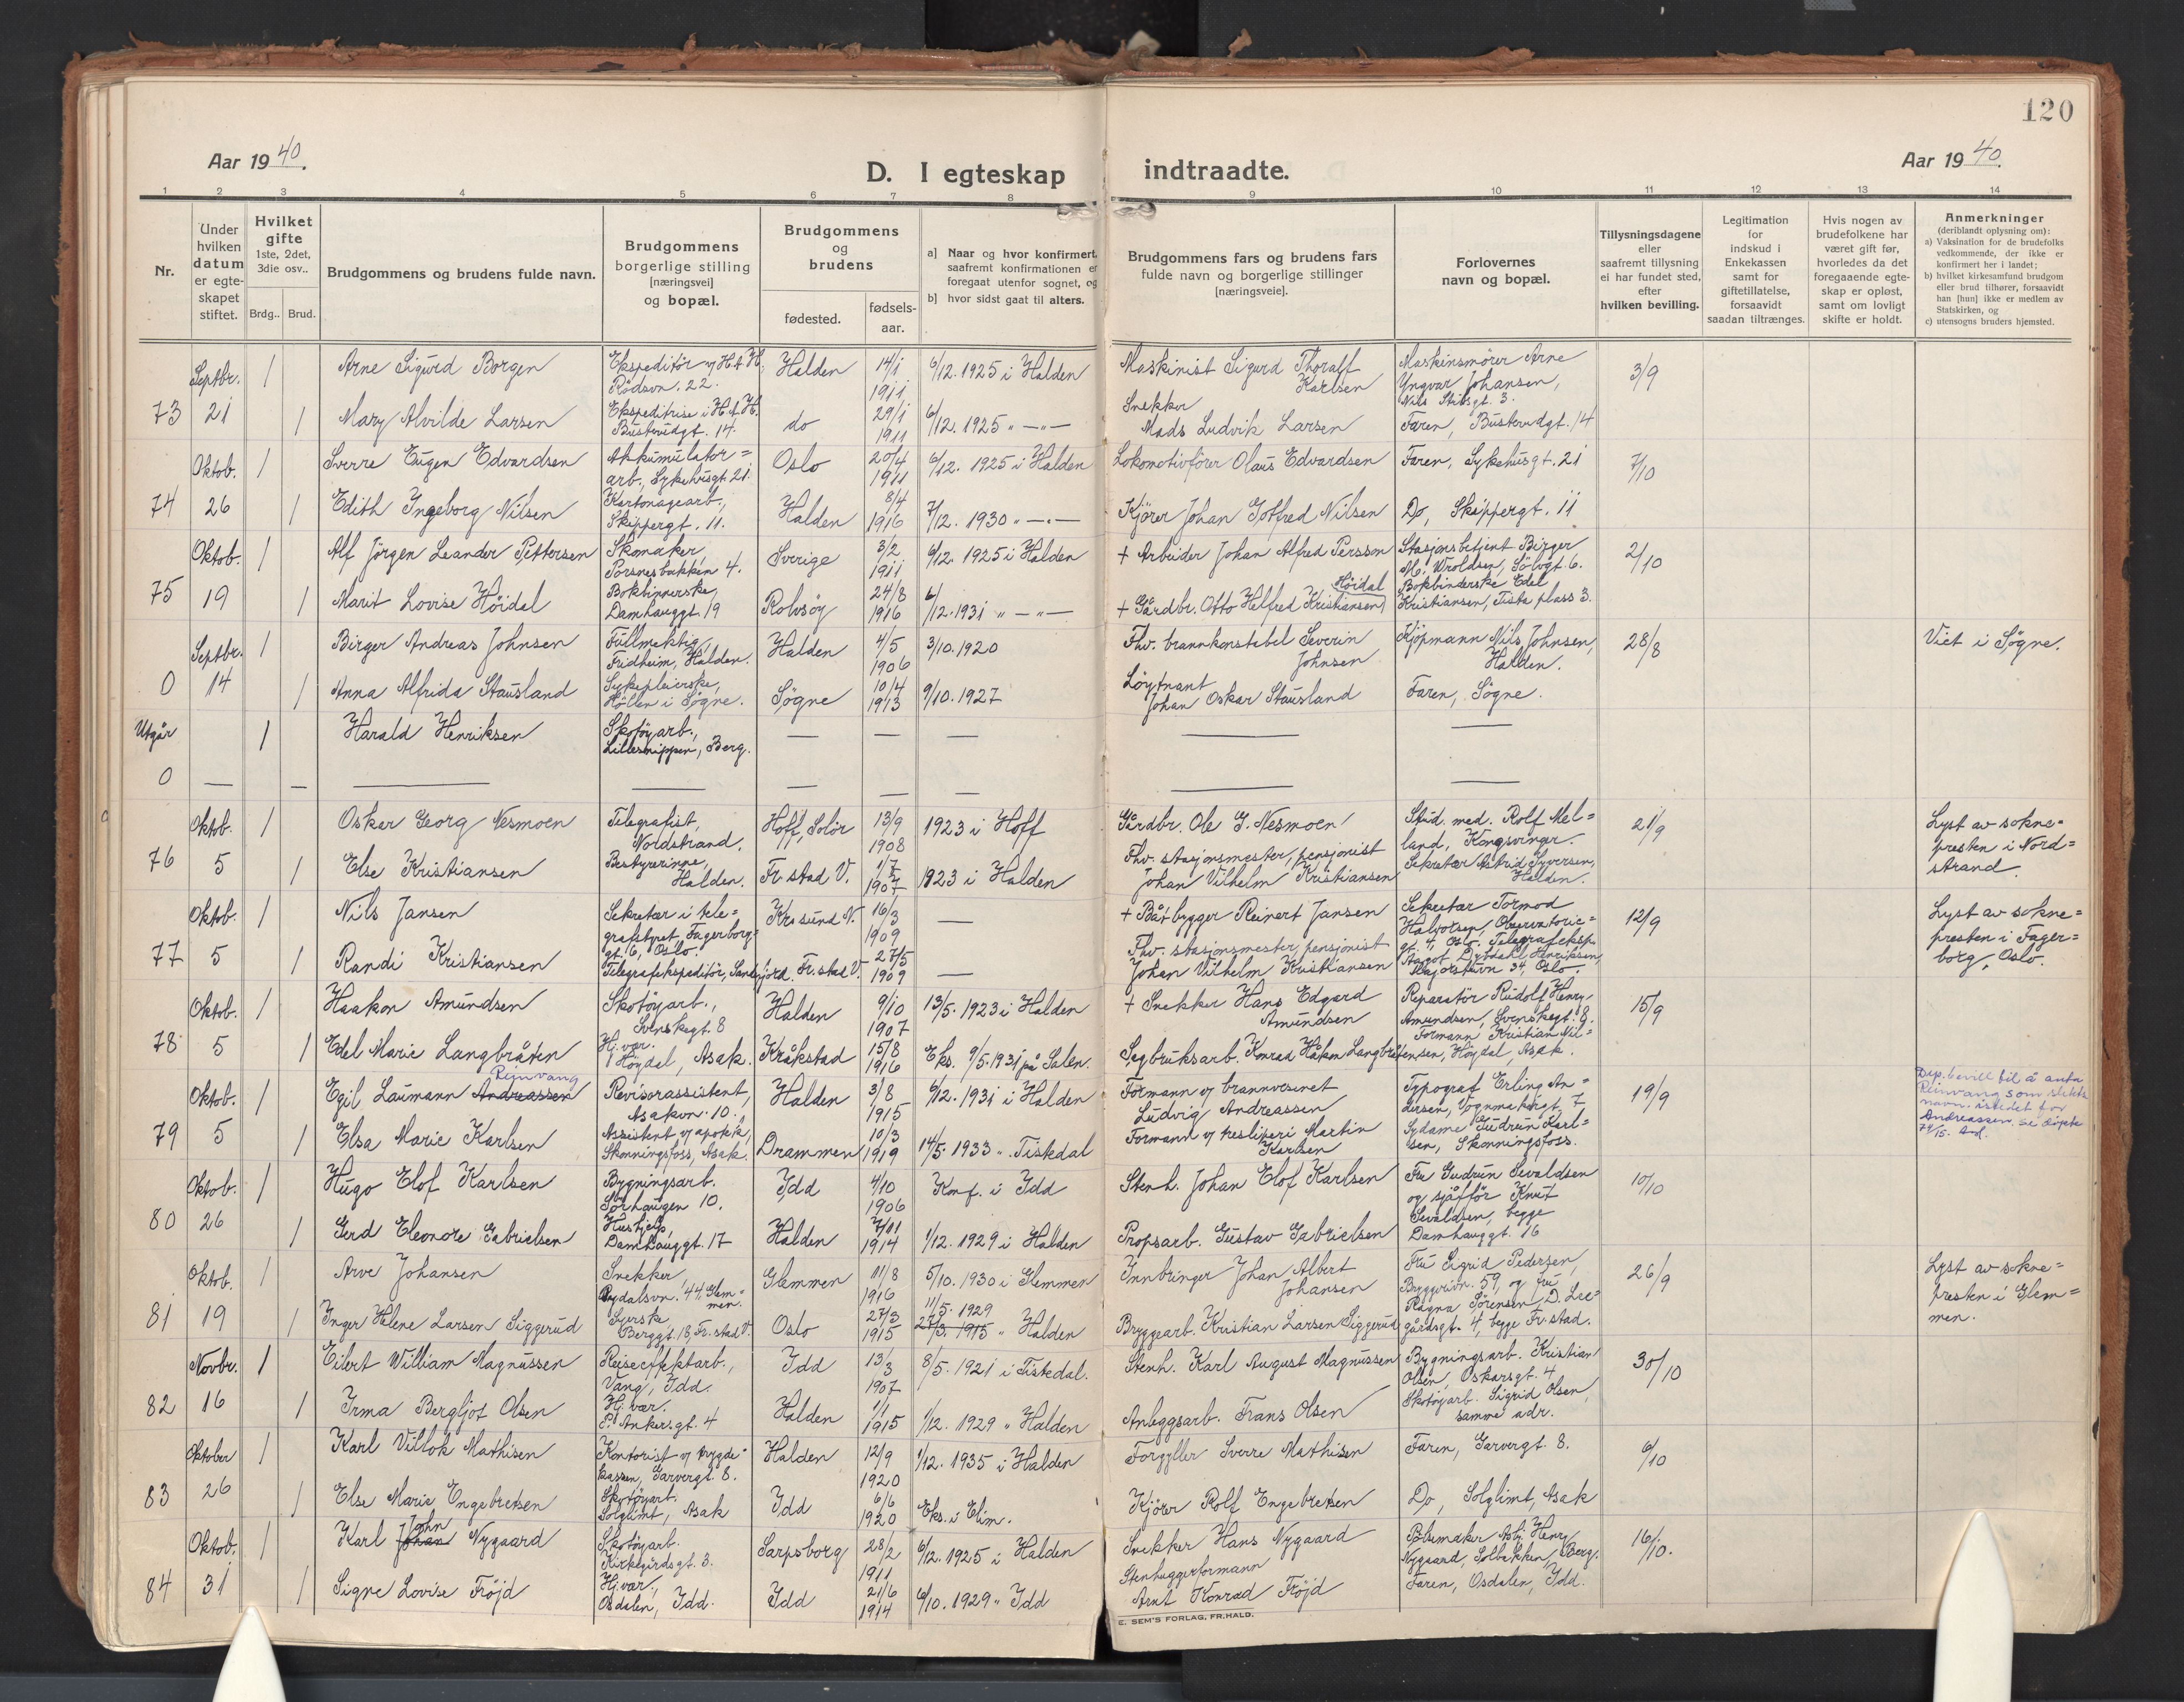 120
Aar 1940.
D. I egteskap indtraadte.
Aar 1940.
1 2 3 4 5 6 7 8 9 10 11 12 13 14
Nr.
Under hvilken datum er egteskapet stiftet.
Hvilket gifte 1ste, 2det, 3die osv..
Brdg.. Brud.
Brudgommens og brudens fulde navn.
Brudgommens borgerlige stilling [næringsvei] og bopæl.
Brudgommens og brudens
fødested.
fødsels-aar.
a] Naar og hvor konfirmert, saafremt konfirmationen er foregaat utenfor sognet, og
b] hvor sidst gaat til alters.
Brudgommens fars og brudens fars fulde navn og borgerlige stillinger [næringsveie].
Forlovernes navn og bopæl.
Tillysningsdagene eller saafremt tillysning ei har fundet sted, efter hvilken bevilling.
Legitimation for indskud i Enkekassen samt for giftetillatelse, forsaavidt saadan tiltrænges.
Hvis nogen av brudefolkene har været gift før, hvorledes da det foregaaende egteskap er opløst, samt om lovligt skifte er holdt.
Anmerkninger (deriblandt oplysning om):
a) Vaksination for de brudefolks vedkommende, der ikke er konfirmert her i landet;
b) hvilket kirkesamfund brudgom eller brud tilhører, forsaavidt han [hun] ikke er medlem av Statskirken, og
c) utensogns bruders hjemsted.
Septbr. 1 Arne Sigurd Borgen Ekspeditör v/ H. & H. Rödsvn. 22. Halden 14/1 1911 6/12. 1925 i Halden Maskinist Sigurd Thoralf Karlsen Maskinsmörer Arne Yngvar Johansen, Nils Stibsgt. 3. 3/9
73 21 1 Mary Alvilde Larsen Ekspeditrise i H. & H. Busterudgt. 14. do 29/1 1911 6/12. 1925 " — " — Snekker Mads Ludvik Larsen Faren, Busterudgt. 14
Oktob. 1 Sverre Eugen Edvardsen Akkumulator= arb., Sykehusgt. 21. Oslo 20/4 1911 6/12. 1925 i Halden Lokomotivförer Olaus Edvardsen Faren, Sykehusgt. 21 7/10
74 26 1 Edith Ingeborg Nilsen Kartonagearb., Skippergt. 11. Halden 8/4 1916 7/12. 1930 " — " — Kjörer Johan Gotfred Nilsen Do, Skippergt. 11
Oktob. 1 Alf Jörgen Leander Pettersen Skomaker, Porsnesbakken 4. Sverige 3/2 1911 6/12. 1925 i Halden + Arbeider Johan Alfred Persson Stasjonsbetjent Birger M. Wroldsen, Sölvgt. 6. 2/10
75 19 1 Marit Lovise Höidal Bokbinnerske, Damhauggt. 19 Rolvsöy 24/8 1916 6/12. 1931 " — " — + Gårdbr. Otto Helfred Kristiansen Höidal Bokbinderske Edel Kristiansen, Tista plass 3.
Septbr. 1 Birger Andreas Johnsen Fullmektig, Fridheim, Halden. Halden 4/5 1906 3/10. 1920 Fhv. brannkonstabel Severin Johnsen Kjöpmann Nils Johnsen, Halden. 28/8 Viet i Søgne.
0 14 1 Anna Alfrida Stausland Sykepleierske, Höllen i Søgne. Søgne 10/4 1913 9/10. 1927 Löytnant Johan Oskar Stausland Faren, Søgne.
Utgår 1 Harald Henriksen Skotöyarb., Lillesnippen, Berg. — — — — —
0 — — — — — — — — —
Oktob. 1 Oskar Georg Nesmoen Telegrafist, Nordstrand. Hoff, Solör 13/9 1908 1923 i Hoff Gårdbr. Ole G. Nesmoen Stud. med. Rolf Mel= land, Kongsvinger. 21/9 Lyst av sokne= presten i Nord= strand.
76 5 1 Else Kristiansen Bestyrerinne, Halden. Fr.stad V. 1/7 1907 1923 i Halden Fhv. stasjonsmester, pensjonist Johan Vilhelm Kristiansen Sekretær Astrid Syversen, Halden.
Oktob. 1 Nils Jansen Sekretær i tele= grafstyret, Fagerborg= gt. 6, Oslo. Krsund N. 16/3 1909 — + Båtbygger Reinert Jansen Sekretær Tormod Halvorsen, Observatorie= gt. 4, Oslo. 12/9 Lyst av sokne= presten i Fager= borg, Oslo.
77 5 1 Randi Kristiansen Telegrafekspeditör, Sandefjord. Fr.stad V. 27/5 1909 — Fhv. stasjonsmester, pensjonist Johan Vilhelm Kristiansen Telegrafeksp. Aagot Dybdahl Henriksen, Majorstuvn 34, Oslo.
Oktob. 1 Haakon Amundsen Skotöyarb., Svenskegt. 8 Halden 9/10 1907 13/5. 1923 i Halden + Snekker Hans Edgard Amundsen Reparatör Rudolf Henry Amundsen, Svenskegt. 8. 15/9
78 5 1 Edel Marie Langbråten Hj. vær. Höydal, Asak. Kråkstad 15/8 1916 Eks. 9/5. 1931 på Salen. Sagbruksarb. Konrad Håkon Langbråten Formann Kristian Nil= sen, Höydal, Asak.
Oktob. 1 Egil Laumann Andreassen Reinvang Revisorassistent, Asakvn. 10. Halden 3/8 1915 6/12. 1931 i Halden Formann v/ brannvesenet Ludvig Andreassen Typograf Erling An= dersen, Vognmakergt. 7 19/9 Dep. bevill. til å anta Reinvang som slekts navn istedet for Andreassen. Se döpte 74/15.
79 5 1 Elsa Marie Karlsen Assistent v/ apotek, Skonningsfoss, Asak. Drammen 10/3 1919 14/5. 1933 " Tistedal Formann v/ tresliperi Martin Karlsen Sydame Gudrun Karl= sen, Skonningsfoss.
Oktob. 1 Hugo Elof Karlsen Bygningsarb. Sörhaugen 10. Idd 4/10 1906 Konf. i Idd Stenh. Johan Elof Karlsen Fru Gudrun Sevaldsen og sjåfför Knut Sevaldsen, begge Damhauggt. 16 10/10
80 26 1 Gerd Eleonore Gabrielsen Hushjelp, Damhauggt. 17 Halden 7/11 1914 1/12. 1929 i Halden Propsarb. Gustav Gabrielsen
Oktob. 1 Arve Johansen Snekker, Rydalsvn. 44, Glem= men. Glemmen 11/8 1916 5/10. 1930 i Glemmen Innbringer Johan Albert Johansen Fru Sigrid Pedersen, Bryggerivn. 59, og fru Ragna Sörensen, D. Lee= gårdsgt. 4, begge Fr.stad. 26/9 Lyst av sokne= presten i Glem= men.
81 19 1 Inger Helene Larsen Siggerud Syerske Berggt. 18, Fr.stad V. Oslo 27/3 1915 11/5. 1929 27/3. 1915 " Halden Bryggearb. Kristian Larsen Siggerud
Novbr. 1 Eilert William Magnussen Reiseeffektarb., Vang, Idd. Idd 13/3 1907 8/5. 1921 i Tistedal. Stenh. Karl August Magnussen Bygningsarb. Kristian Olsen, Oskarsgt. 4 30/10
82 16 1 Irma Bergljot Olsen Hj. vær. P. Ankersgt. 4 Halden 1/1 1915 1/12. 1929 " Halden Anleggsarb. Frans Olsen Skotöyarb. Sigrid Olsen, samme adr.
Oktober 1 Karl Villok Mathisen Kontorist v/ trygde= kassen, Garvergt. 8. Halden 12/9 1920 1/12. 1935 i Halden Forgyller Sverre Mathisen Faren, Garvergt. 8. 6/10
83 26 1 Else Marie Engebretsen Skotöyarb. Solglimt, Asak Idd 6/6 1920 Eks. i Elim. Kjörer Rolf Engebretsen Do, Solglimt, Asak
Oktob. 1 Karl Johan John Nygaard Skotöyarb. Kirkegårdsgt. 3. Sarpsborg 28/2 1911 6/12. 1925 i Halden Snekker Hans Nygaard Henry Nygaard, Solbakken, Berg. 16/10.
84 31 1 Signe Lovise Fröjd Hj. vær., Osdalen, Idd. Idd 21/6 1914 6/10. 1929 " Idd Stenhuggerformann Arnt Konrad Fröjd Faren, Osdalen, Idd.
E. SEM'S FORLAG, FR.HALD.